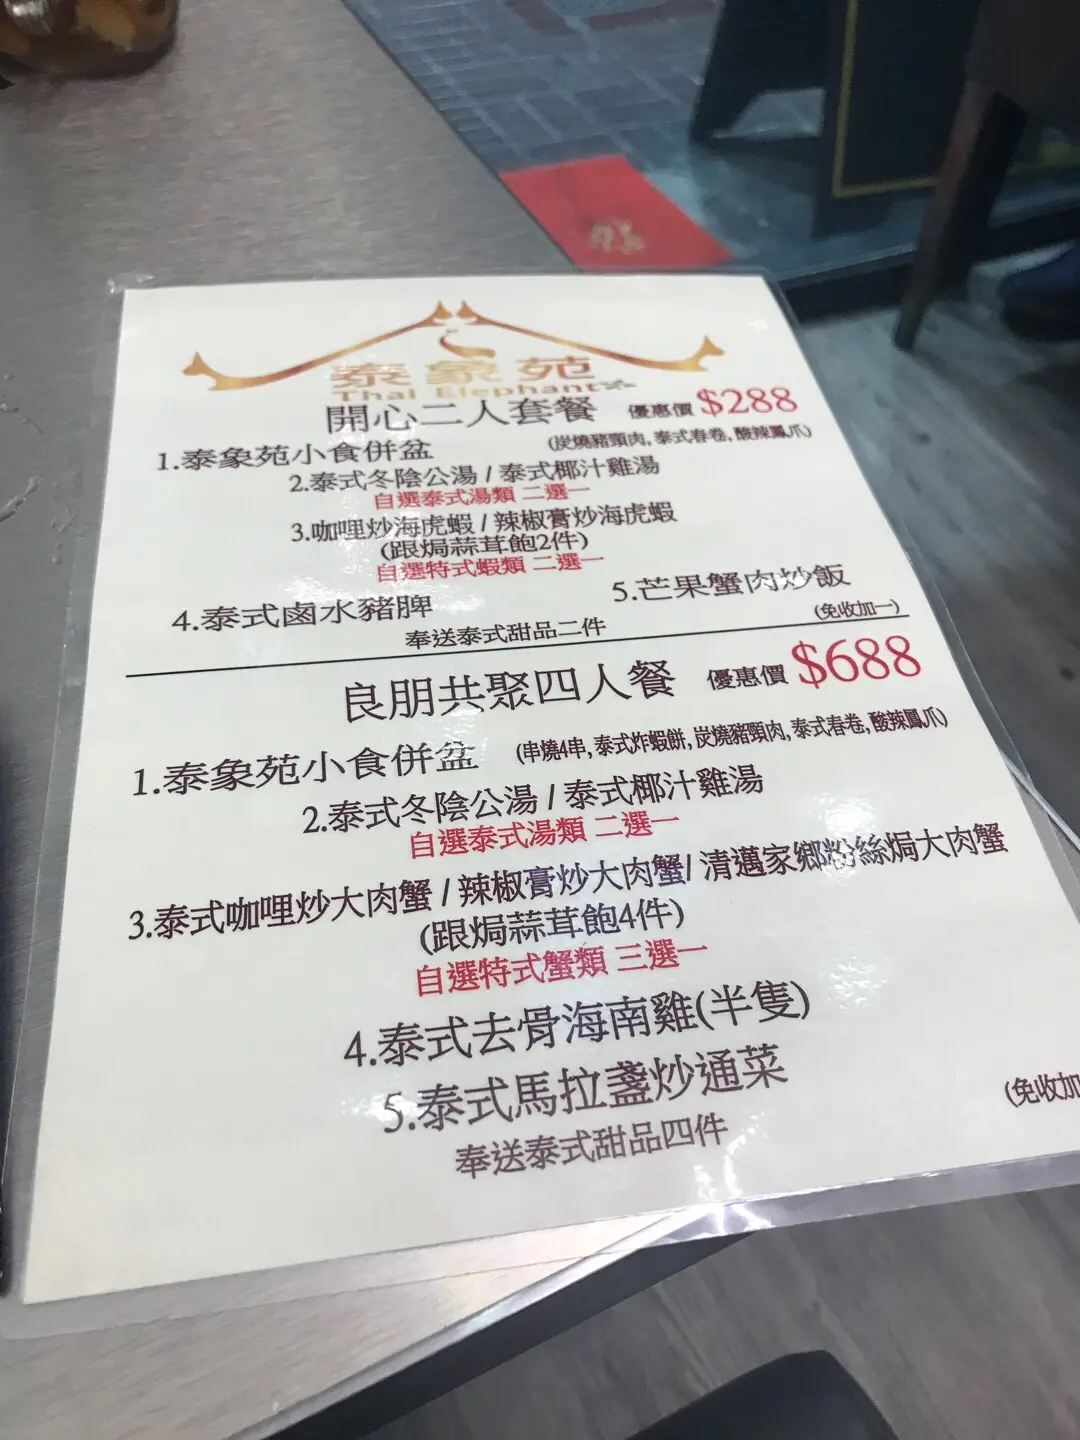 泰象苑
Thai Elephant
開心二人套餐 優惠價 $288
1.泰象苑小食併盆 (炭燒豬頸肉,泰式春卷,酸辣鳳爪)
2.泰式冬陰公湯 / 泰式椰汁雞湯
自選泰式湯類 二選一
3.咖哩炒海虎蝦 / 辣椒膏炒海虎蝦
(跟焗蒜茸飽2件)
自選特式蝦類 二選一
4.泰式鹵水豬脾 5.芒果蟹肉炒飯
奉送泰式甜品二件 (免收加一)
良朋共聚四人餐 優惠價 $688
1.泰象苑小食併盆 (串燒4串,泰式炸蝦餅,炭燒豬頸肉,泰式春卷,酸辣鳳爪)
2.泰式冬陰公湯 / 泰式椰汁雞湯
自選泰式湯類 二選一
3.泰式咖哩炒大肉蟹 / 辣椒膏炒大肉蟹/ 清邁家鄉粉絲焗大肉蟹
(跟焗蒜茸飽4件)
自選特式蟹類 三選一
4.泰式去骨海南雞(半隻)
5.泰式馬拉盞炒通菜
奉送泰式甜品四件 (免收加